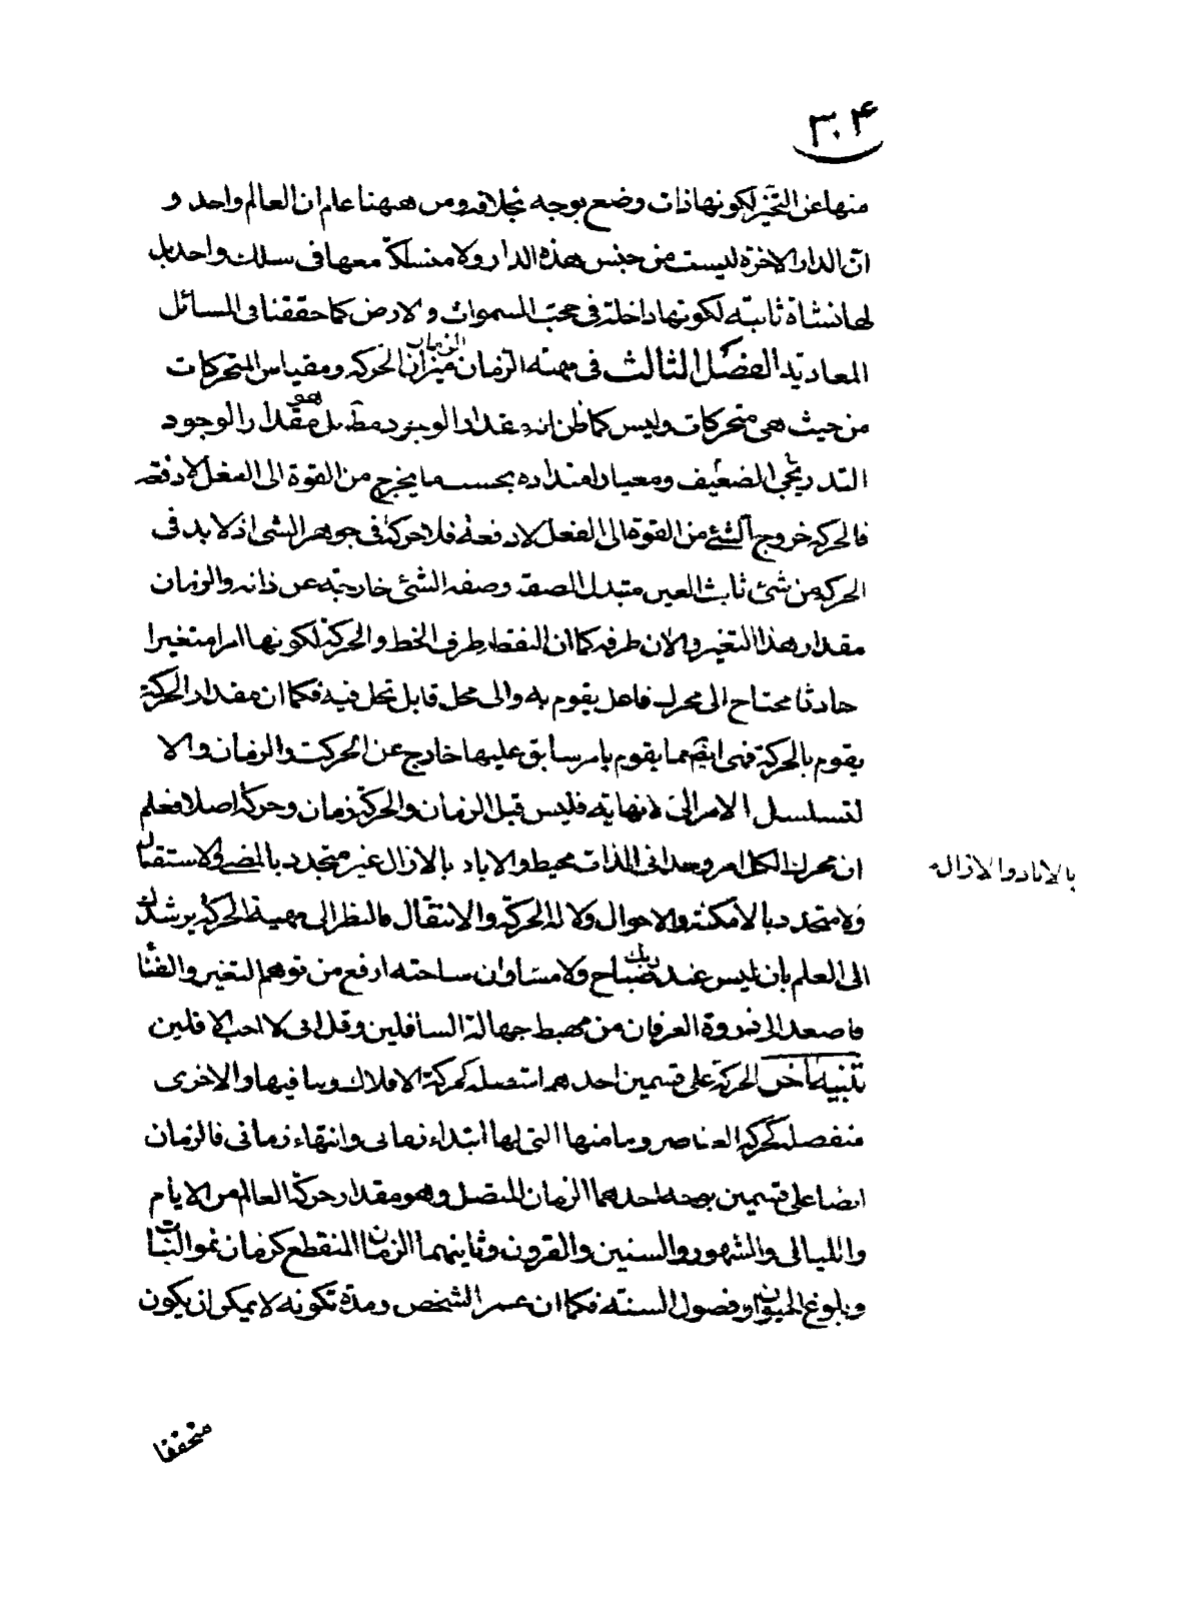 ٣٠۴
منها عن التحيز لكونها ذات وضع بوجه بخلافه ومن ههنا علم ان العالم واحد و
ان الدار الاخرة ليست من جنس هذه الدار ولا منسلكة معها فى سلك واحد بل
لها نشاة ثانية لكونها داخلة فى حجب السموات والارض كما حققنا فى المسائل
المعادية الفصل الثالث فى مهية الزمان الزمان ميزان الحركة ومقياس المتحركات
من حيث هى متحركات وليس كما ظن انه مقدار الوجود مط بل هو مقدار الوجود
التدريجى الضعيف ومعيار امتداده بحسب ما يخرج من القوة الى الفعل لا دفعة
فالحركة خروج الشئ من القوة الى الفعل لا دفعة فلا حركة فى جوهر الشئ اذ لا بد فى
الحركة من شئ ثابت العين متبدل الصفة وصفة الشئ خارجة عن ذاته والزمان
مقدار هذا التغير والان طرفه كما ان النقطة طرف الخط والحركة لكونها امرا متغيرا
حادثا محتاج الى محرك فاعل يقوم به والى محل قابل تحل فيه فكما ان مقدار الحركة
يقوم بالحركة فهى ايضا مما يقوم بامر سابق عليها خارج عن الحركة والزمان والا
لتسلسل الامر الى لا نهاية فليس قبل الزمان والحركة زمان وحركة اصلا فعلم
ان محرك الكل امر وحدانى الذات محيط والاباد بالازال غير متجدد بالمضى والاستقبال
بالاباد والازال
ولا متجدد بالامكنة والاحوال ولا له الحركة والانتقال فالنظر الى مهية الحركة يرشدك
الى العلم بان ليس عند ربك صباح ولا مساء وان ساحته ارفع من توهم التغير والفناء
فاصعد الى ذروة العرفان من مهبط جهالة السافلين وقل انى لا احب الافلين
تنبيه اخر الحركة على قسمين احدهما متصلة كحركة الافلاك وما فيها والاخرى
منفصلة كحركة العناصر وما منها التى لها ابتداء زمانى وانتهاء زمانى فالزمان
ايضا على قسمين بوجه احدهما الزمان المتصل وهو مقدار حركة العالم من الايام
والليالى والشهور والسنين والقرون وثانيهما الزمان المنقطع كزمان نمو النبات
وبلوغ الحيوان وفصول السنة فكما ان عمر الشخص ومدة تكونه لا يمكن ان يكون
متحققا